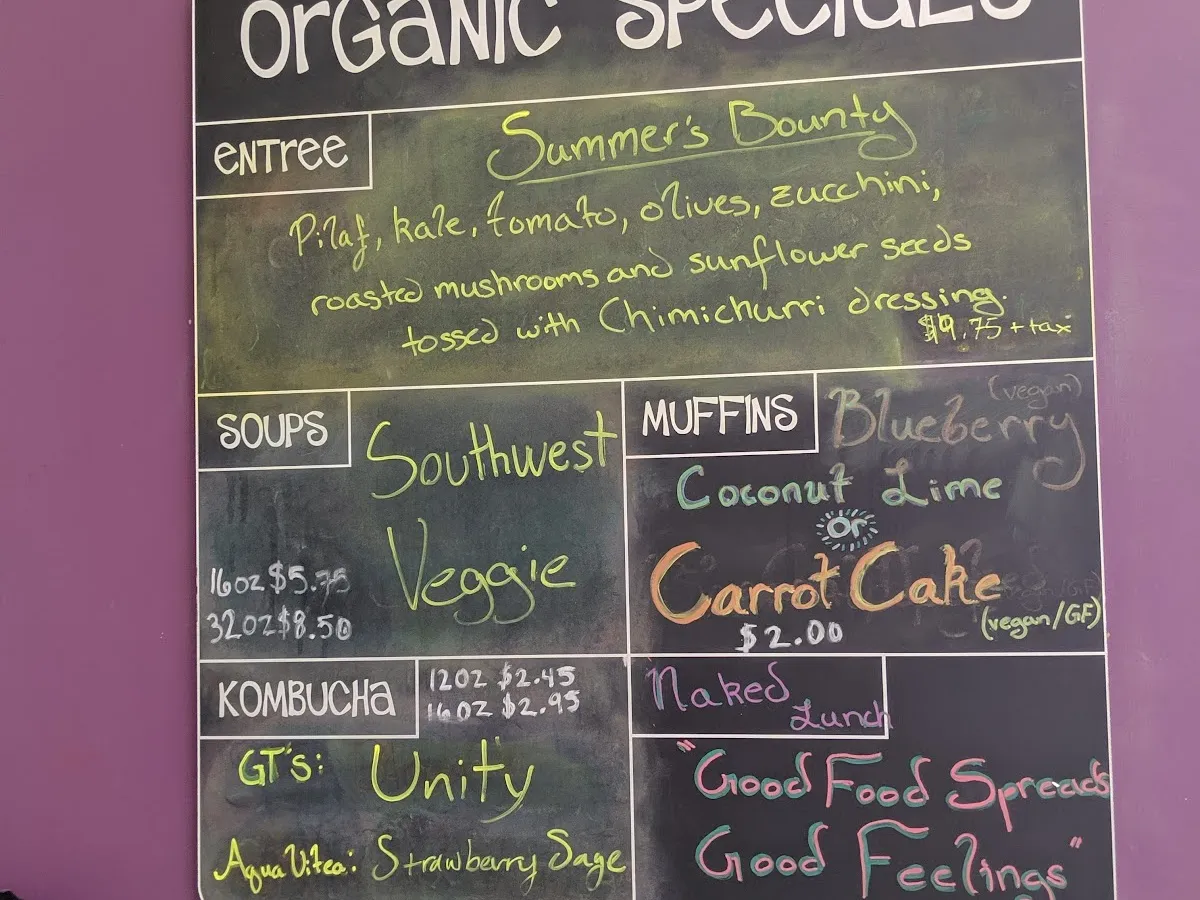 ORGANIC SPECIALS
ENTREE
Summer's Bounty
Pilaf, kale, tomato, olives, zucchini,
roasted mushrooms and sunflower seeds
tossed with Chimichurri dressing.
$9.75 + tax
SOUPS
Southwest
Veggie
16oz $5.75
32oz $8.50
MUFFINS
(vegan)
Blueberry
Coconut Lime
Or
Carrot Cake
(vegan/GF)
$2.00
KOMBUCHA
12oz $2.45
16oz $2.95
GT's: Unity
Aqua Vitea: Strawberry Sage
Naked
Lunch
"Good Food Spreads
Good Feelings"